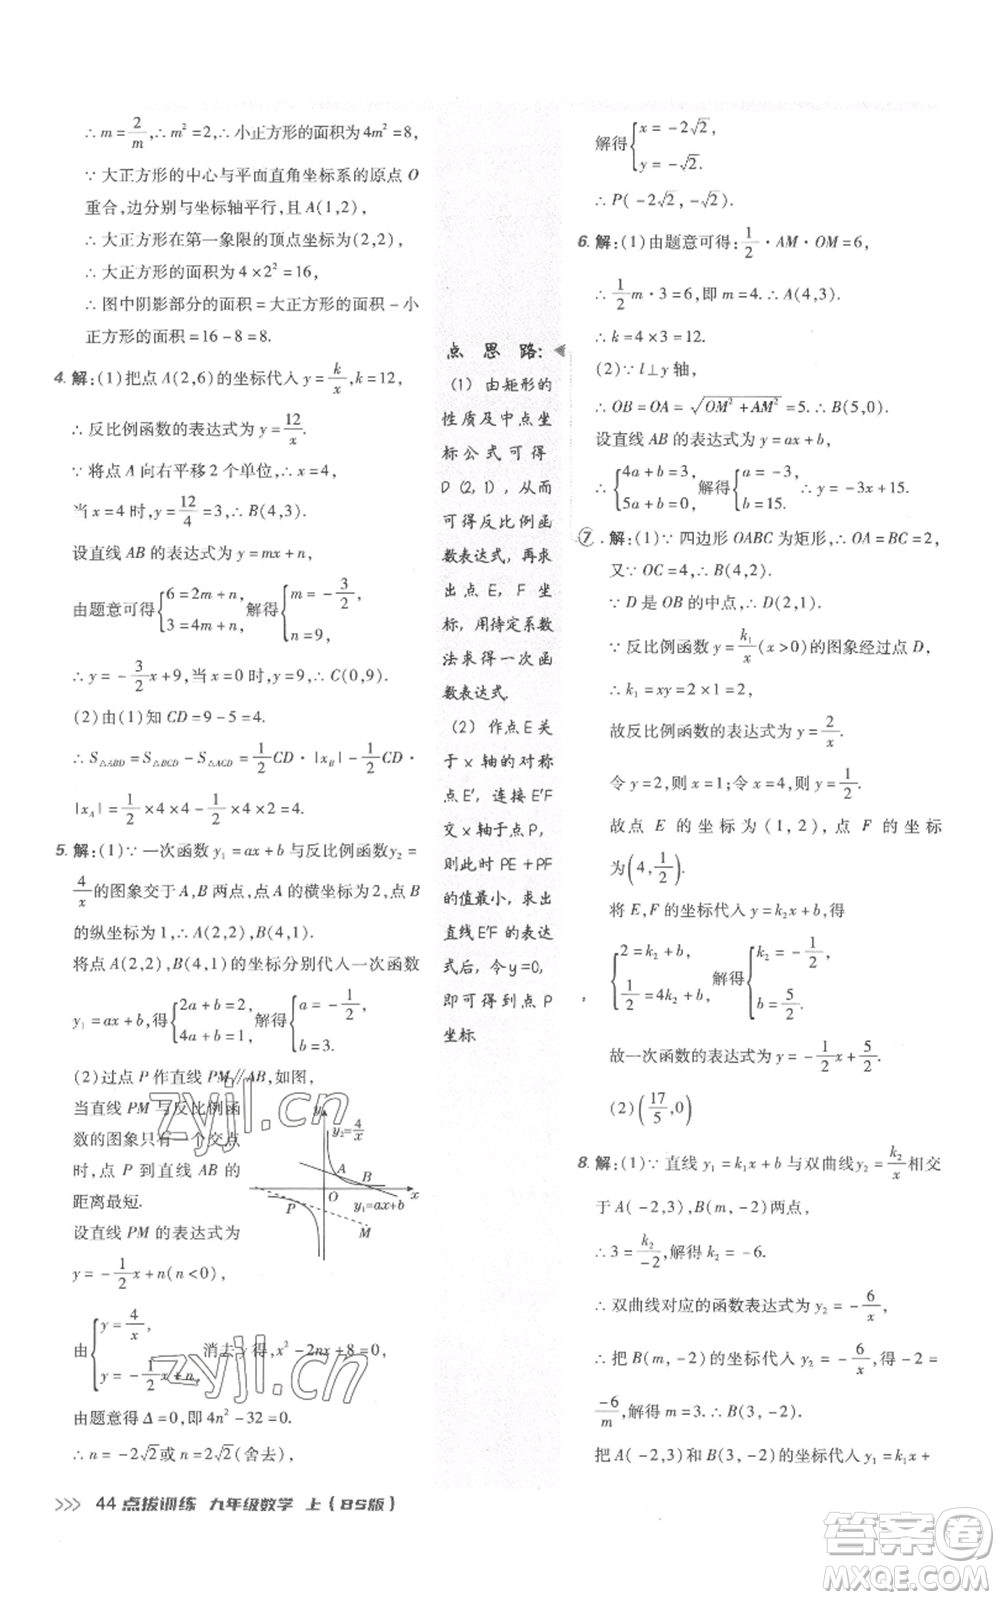 ∴ m = 2/m, ∴ m² = 2, ∴ 小正方形的面积为 4m² = 8,
∵ 大正方形的中心与平面直角坐标系的原点 O
重合,边分别与坐标轴平行,且 A(1,2),
∴ 大正方形在第一象限的顶点坐标为(2,2),
∴ 大正方形的面积为 4×2² = 16,
∴ 图中阴影部分的面积 = 大正方形的面积 - 小
正方形的面积 = 16 - 8 = 8.
4. 解:(1)把点 A(2,6)的坐标代入 y = k/x, k = 12,
∴ 反比例函数的表达式为 y = 12/x.
∵ 将点 A 向右平移 2 个单位,∴ x = 4.
当 x = 4 时,y = 12/4 = 3, ∴ B(4,3).
设直线 AB 的表达式为 y = mx + n,
由题意可得 {6 = 2m + n, 3 = 4m + n, 解得 {m = -3/2, n = 9,
∴ y = -3/2 x + 9, 当 x = 0 时,y = 9, ∴ C(0,9).
(2)由(1)知 CD = 9 - 5 = 4.
∴ S△ABD = S△BCD - S△ACD = 1/2 CD · |x_B| - 1/2 CD ·
|x_A| = 1/2 × 4 × 4 - 1/2 × 4 × 2 = 4.
5. 解:(1)∵ 一次函数 y₁ = ax + b 与反比例函数 y₂ =
4/x 的图象交于 A,B 两点,点 A 的横坐标为 2,点 B
的纵坐标为 1, ∴ A(2,2), B(4,1).
将点 A(2,2),B(4,1)的坐标分别代入一次函数
y₁ = ax + b, 得 {2a + b = 2, 4a + b = 1, 解得 {a = -1/2, b = 3.
(2)过点 P 作直线 PM∥AB,如图,
当直线 PM 与反比例函
数的图象只有一个交点
时,点 P 到直线 AB 的
距离最短.
设直线 PM 的表达式为
y = -1/2 x + n(n<0),
y
y₂=4/x
A
B
O
x
P
y₁=ax+b
M
由 {y = 4/x, y = -1/2 x + n, 消去 y 得,x² - 2nx + 8 = 0,
由题意得 Δ = 0, 即 4n² - 32 = 0.
∴ n = -2√2 或 n = 2√2(舍去),
点 思 路:
(1) 由矩形的
性质及中点坐
标公式可得
D (2, 1), 从而
可得反比例函
数表达式,再求
出点 E, F 坐
标,用待定系数
法求得一次函
数表达式.
(2) 作点 E 关
于 x 轴的对称
点 E′, 连接 E′F
交 x 轴于点 P,
则此时 PE + PF
的值最小,求出
直线 E′F 的表达
式后,令 y = 0,
即可得到点 P
坐标.
解得 {x = -2√2, y = -√2.
∴ P(-2√2, -√2).
6. 解:(1)由题意可得:1/2 · AM · OM = 6,
∴ 1/2 m · 3 = 6, 即 m = 4. ∴ A(4,3).
∴ k = 4 × 3 = 12.
(2)∵ l⊥y 轴,
∴ OB = OA = √(OM² + AM²) = 5. ∴ B(5,0).
设直线 AB 的表达式为 y = ax + b,
∴ {4a + b = 3, 5a + b = 0, 解得 {a = -3, b = 15. ∴ y = -3x + 15.
⑦. 解:(1)∵ 四边形 OABC 为矩形,∴ OA = BC = 2,
又∵ OC = 4, ∴ B(4,2).
∵ D 是 OB 的中点,∴ D(2,1).
∵ 反比例函数 y = k₁/x (x>0)的图象经过点 D,
∴ k₁ = xy = 2×1 = 2,
故反比例函数的表达式为 y = 2/x.
令 y = 2, 则 x = 1; 令 x = 4, 则 y = 1/2.
故点 E 的坐标为 (1,2), 点 F 的坐标
为(4, 1/2).
将 E,F 的坐标代入 y = k₂x + b, 得
{2 = k₂ + b, 1/2 = 4k₂ + b, 解得 {k₂ = -1/2, b = 5/2.
故一次函数的表达式为 y = -1/2 x + 5/2.
(2)(17/5, 0)
8. 解:(1)∵ 直线 y₁ = k₁x + b 与双曲线 y₂ = k₂/x 相交
于 A(-2,3), B(m,-2)两点,
∴ 3 = k₂/-2, 解得 k₂ = -6.
∴ 双曲线对应的函数表达式为 y₂ = -6/x.
∴ 把 B(m,-2)的坐标代入 y₂ = -6/x, 得 -2 =
-6/m, 解得 m = 3. ∴ B(3,-2).
把 A(-2,3)和 B(3,-2)的坐标代入 y₁ = k₁x +
>>> 44 点拨训练 九年级数学 上(BS版)
zyjl.cn
zyjl.cn
答案圈
MXQE.COM